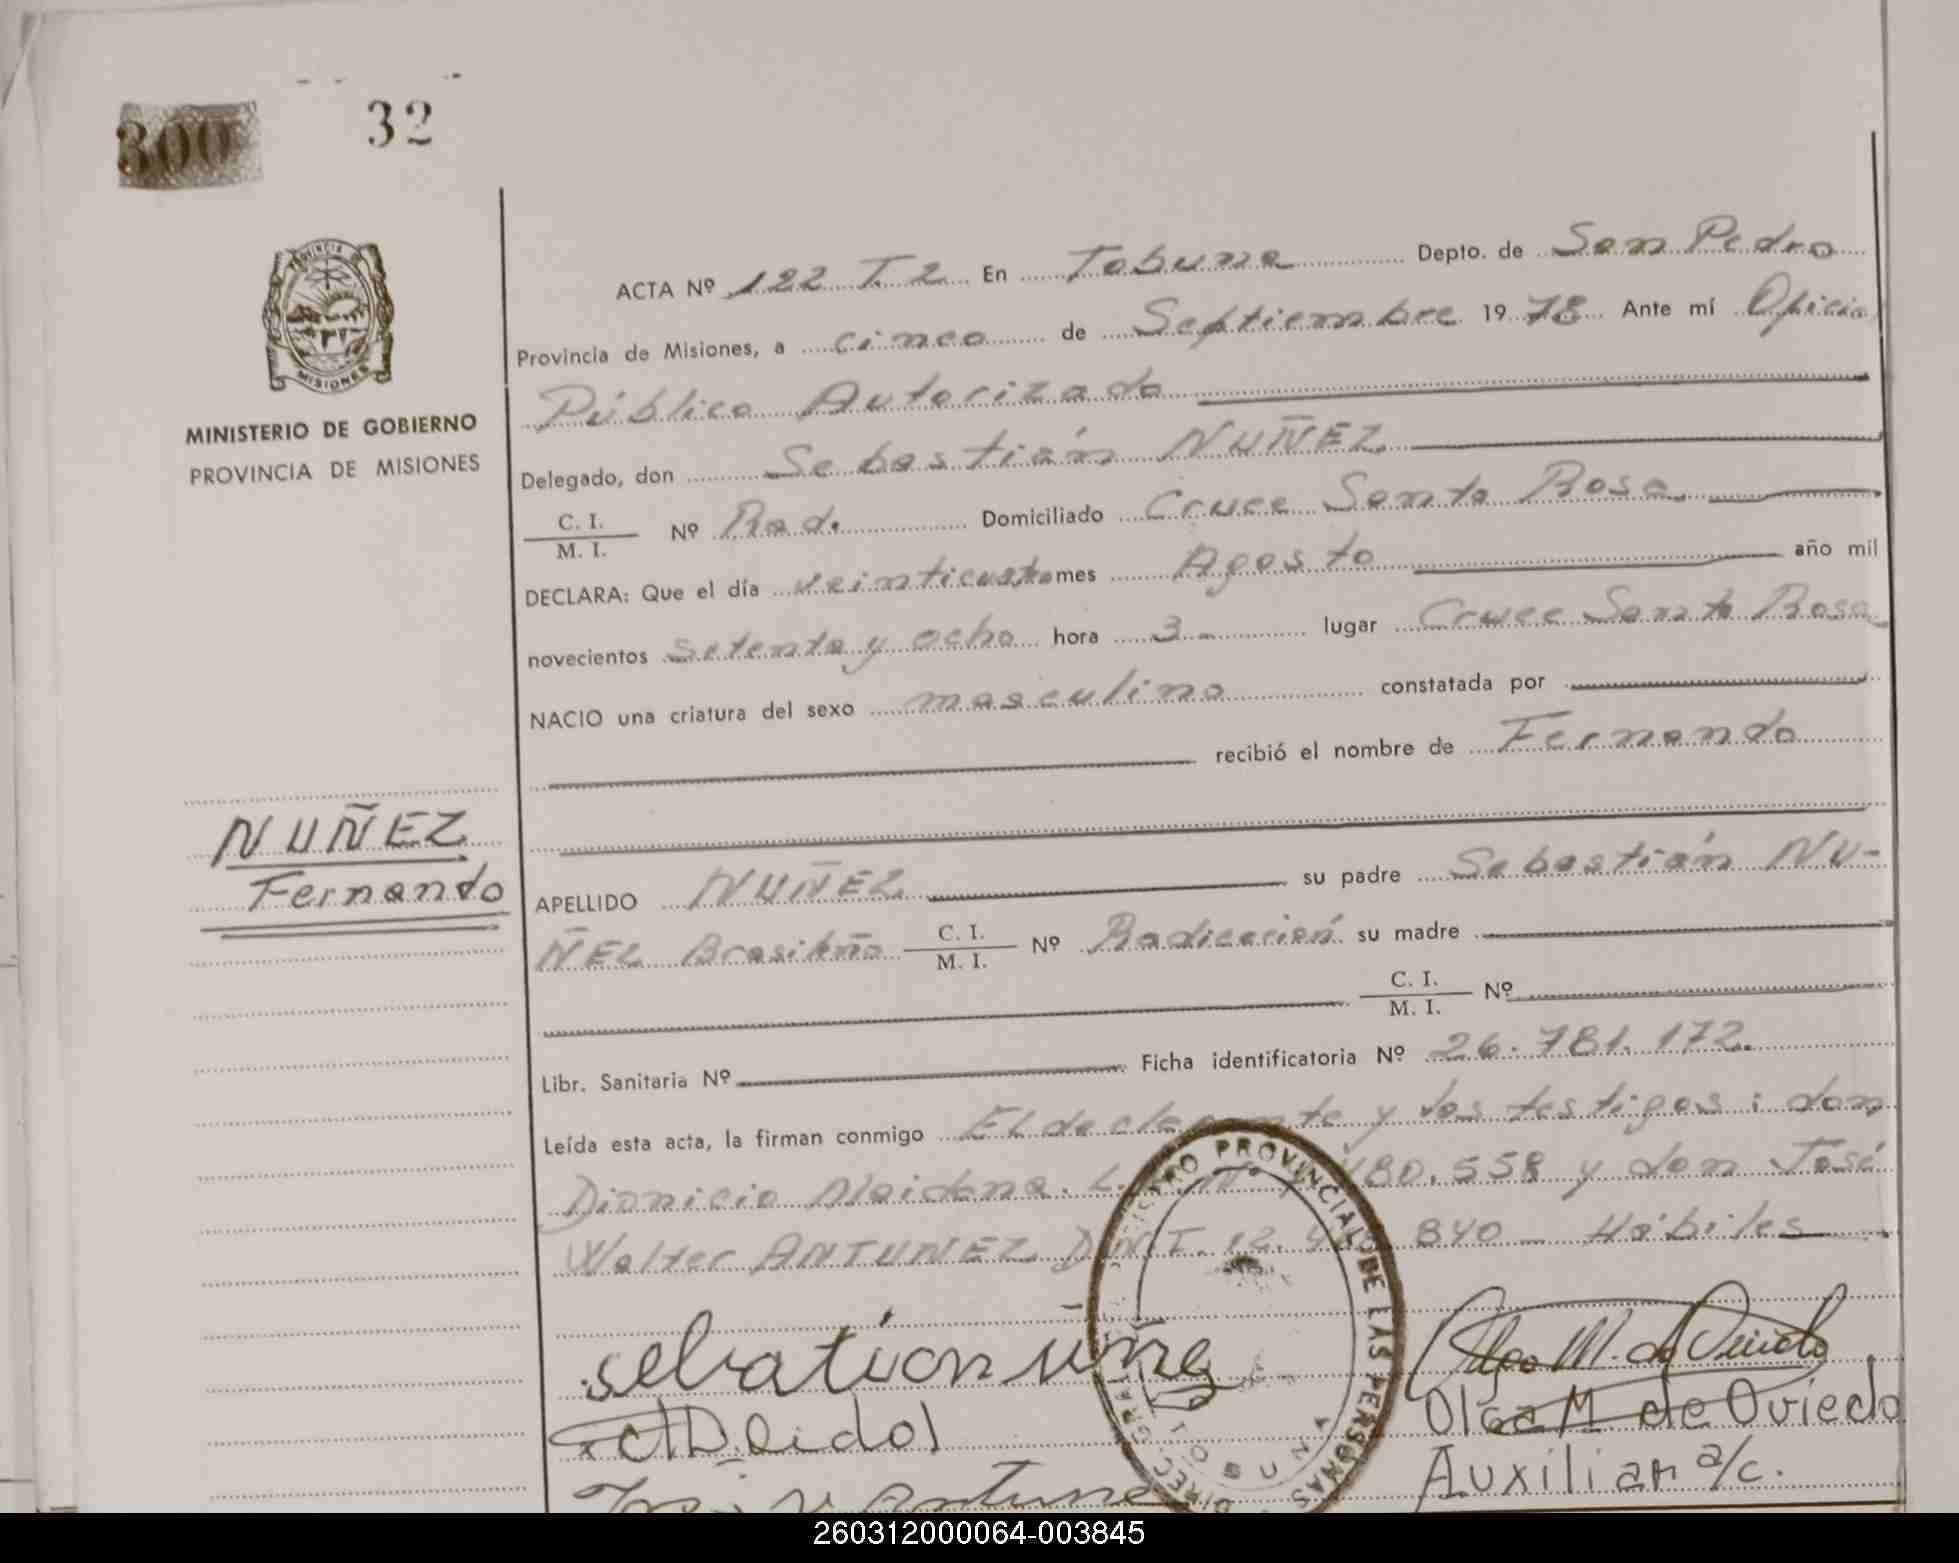 300 32
PROVINCIA DE
MISIONES
MINISTERIO DE GOBIERNO
PROVINCIA DE MISIONES
NUÑEZ
Fernando
ACTA Nº 122 T.2 En Tobuna Depto. de San Pedro
Provincia de Misiones, a cinco de Septiembre 1978 Ante mí Oficial
Público Autorizado
Delegado, don Sebastián NUÑEZ
C. I.
M. I. Nº Rad. Domiciliado Cruce Santa Rosa
DECLARA: Que el día veinticuatro mes Agosto año mil
novecientos setenta y ocho hora 3 lugar Cruce Santa Rosa
NACIO una criatura del sexo masculino constatada por
recibió el nombre de Fernando
APELLIDO NUÑEZ su padre Sebastián NU-
ÑEZ Brasileño C. I.
M. I. Nº Radicación su madre
C. I.
M. I. Nº
Libr. Sanitaria Nº Ficha identificatoria Nº 26.781.172.
Leída esta acta, la firman conmigo El declarante y los testigos: don
Dionicio Maidana. L. 480.558 y don José
Walter ANTUNEZ D.N.I. 12. 840 - Hábiles
REGISTRO PROVINCIAL DE LAS PERSONAS
DIREC. GRAL.
TOBUNA
sebation nuñez
Olga M. de Oviedo
Olga M. de Oviedo
Auxiliar a/c.
260312000064-003845